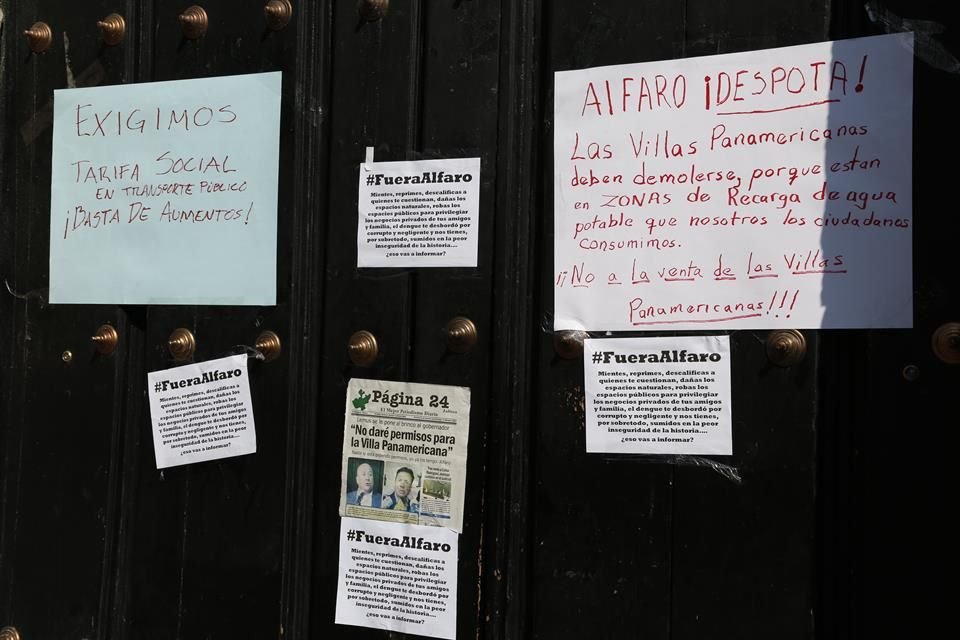 EXIGIMOS
TARIFA SOCIAL
EN TRANSPORTE PÚBLICO
¡BASTA DE AUMENTOS!
#FueraAlfaro
Mientes, reprimes, descalificas a
quienes te cuestionan, dañas los
espacios naturales, robas los
espacios públicos para privilegiar
los negocios privados de tus amigos
y familia, el dengue te desbordó por
corrupto y negligente y nos tienes,
por sobretodo, sumidos en la peor
inseguridad de la historia....
¿eso vas a informar?
ALFARO ¡DESPOTA!
Las Villas Panamericanas
deben demolerse, porque estan
en ZONAS de Recarga de agua
potable que nosotros los ciudadanos
consumimos.
¡¡No a la venta de las Villas
Panamericanas!!!
#FueraAlfaro
Mientes, reprimes, descalificas a
quienes te cuestionan, dañas los
espacios naturales, robas los
espacios públicos para privilegiar
los negocios privados de tus amigos
y familia, el dengue te desbordó por
corrupto y negligente y nos tienes,
por sobretodo, sumidos en la peor
inseguridad de la historia....
¿eso vas a informar?
Página 24
Jalisco
El Mejor Periodismo Diario
Lemus se le pone al brinco al gobernador
"No daré permisos para
la Villa Panamericana"
#FueraAlfaro
Mientes, reprimes, descalificas a
quienes te cuestionan, dañas los
espacios naturales, robas los
espacios públicos para privilegiar
los negocios privados de tus amigos
y familia, el dengue te desbordó por
corrupto y negligente y nos tienes,
por sobretodo, sumidos en la peor
inseguridad de la historia....
¿eso vas a informar?
#FueraAlfaro
Mientes, reprimes, descalificas a
quienes te cuestionan, dañas los
espacios naturales, robas los
espacios públicos para privilegiar
los negocios privados de tus amigos
y familia, el dengue te desbordó por
corrupto y negligente y nos tienes,
por sobretodo, sumidos en la peor
inseguridad de la historia....
¿eso vas a informar?